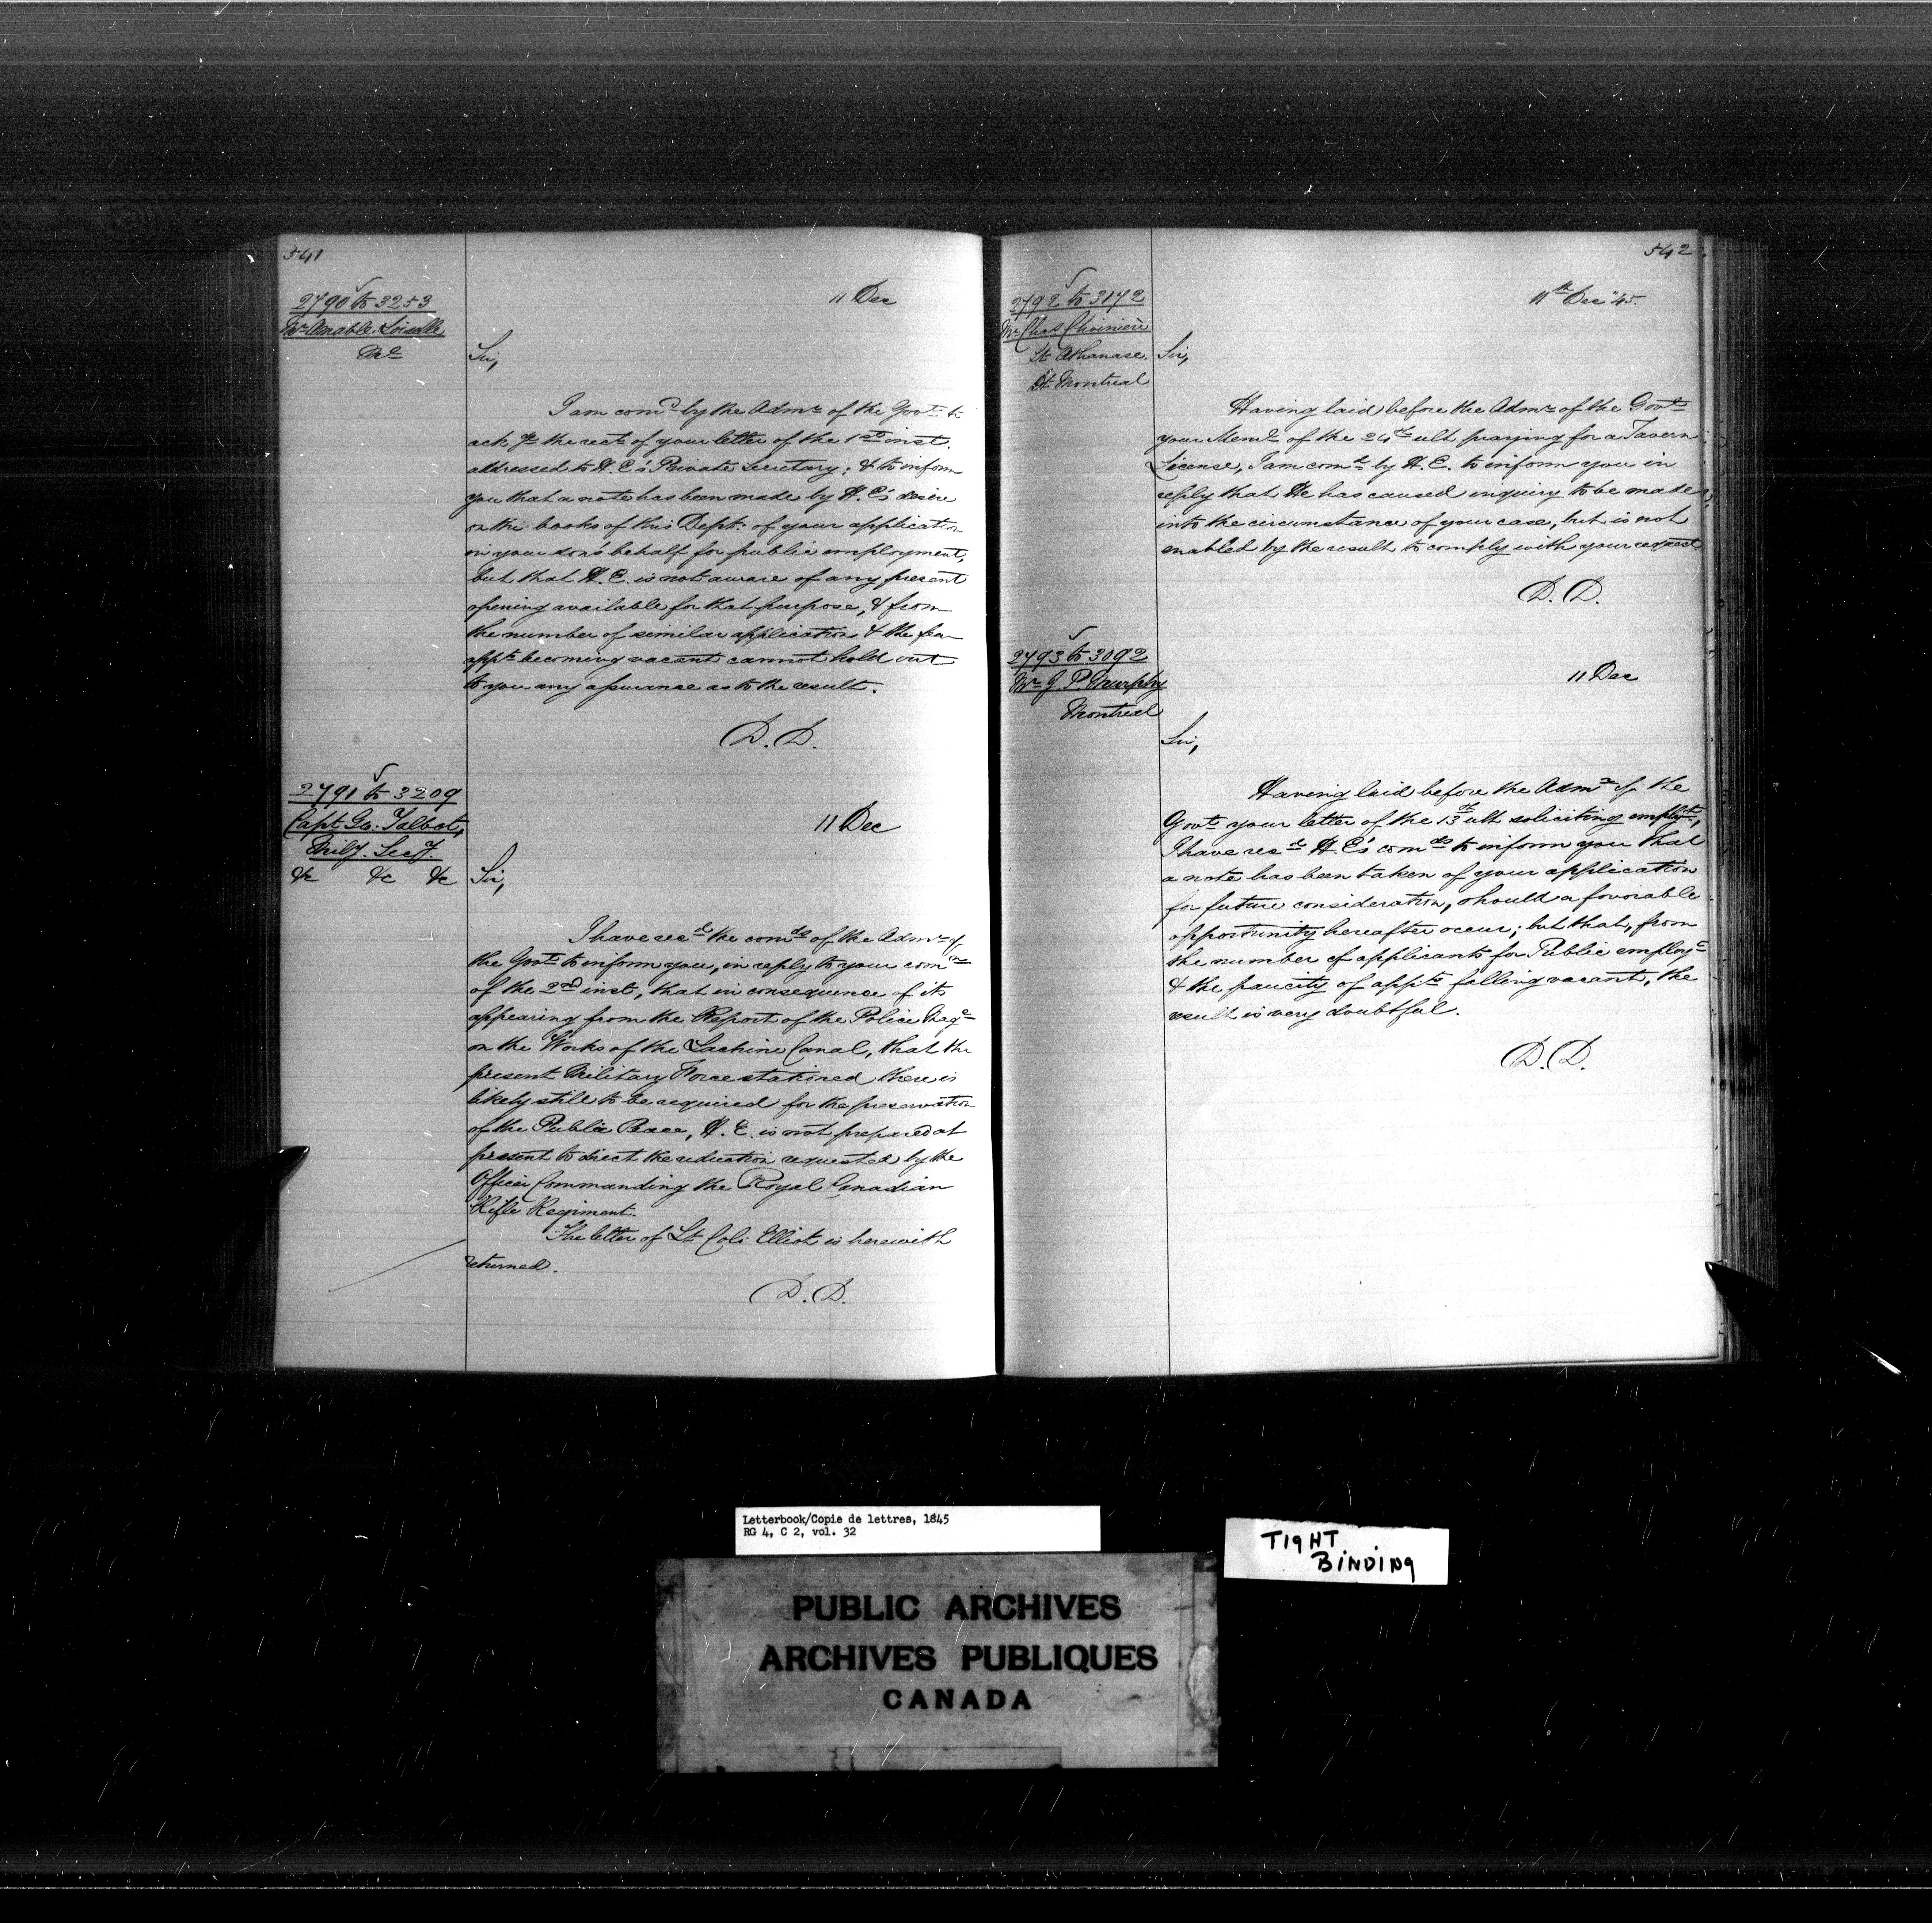 541
2790 to 3253
Mr. Amable Loiselle
&c
11 Dec
Sir,
I am comd. by the Admr. of the Govt. to
ack ge the rect. of your letter of the 1st inst.
addressed to H. E's Private Secretary; & to inform
you that a note has been made by H. E's desire
on the books of this Dept. of your application
in your son's behalf for public employment,
but that H. E. is not aware of any present
opening available for that purpose, & from
the number of similar applications & the few
appts becoming vacant cannot hold out
to you any assurance as to the result.
D. D.
2791 to 3209
Capt Go. Talbot,
Mily. Secy.
&c &c &c
11 Dec
Sir,
I have recd the comds of the Admr of
the Govt to inform you, in reply to your comn
of the 2nd inst, that in consequence of its
appearing from the Report of the Police Mage
on the Works of the Lachine Canal, that the
present Military Force stationed there is
likely still to be required for the preservation
of the Public Peace, H. E. is not prepared at
present to direct the reduction requested by the
Officer Commanding the Royal Canadian
Rifle Regiment.
The letter of Lt Col: Elliot is herewith
returned.
D. D.
542
2792 to 3172
Mr Chas Choinière
St Athanase.
Dt Montreal
11th Dec '45.
Sir,
Having laid before the Admr of the Govt
your Meml of the 24th ult praying for a Tavern
License, I am comd by H. E. to inform you in
reply that He has caused enquiry to be made
into the circumstance of your case, but is not
enabled by the result to comply with your request.
D. D.
2793 to 3092
Mr G. P. Murphy
Montreal
11 Dec
Sir,
Having laid before the Admr of the
Govt your letter of the 13th ult soliciting emplyt,
I have recd H. E's comds to inform you that
a note has been taken of your application
for future consideration, should a favorable
opportunity hereafter occur; but that, from
the number of applicants for Public employt
& the paucity of appts falling vacant, the
result is very doubtful.
D. D.
Letterbook/Copie de lettres, 1845
RG 4, C 2, vol. 32
TIGHT
BINDING
PUBLIC ARCHIVES
ARCHIVES PUBLIQUES
CANADA